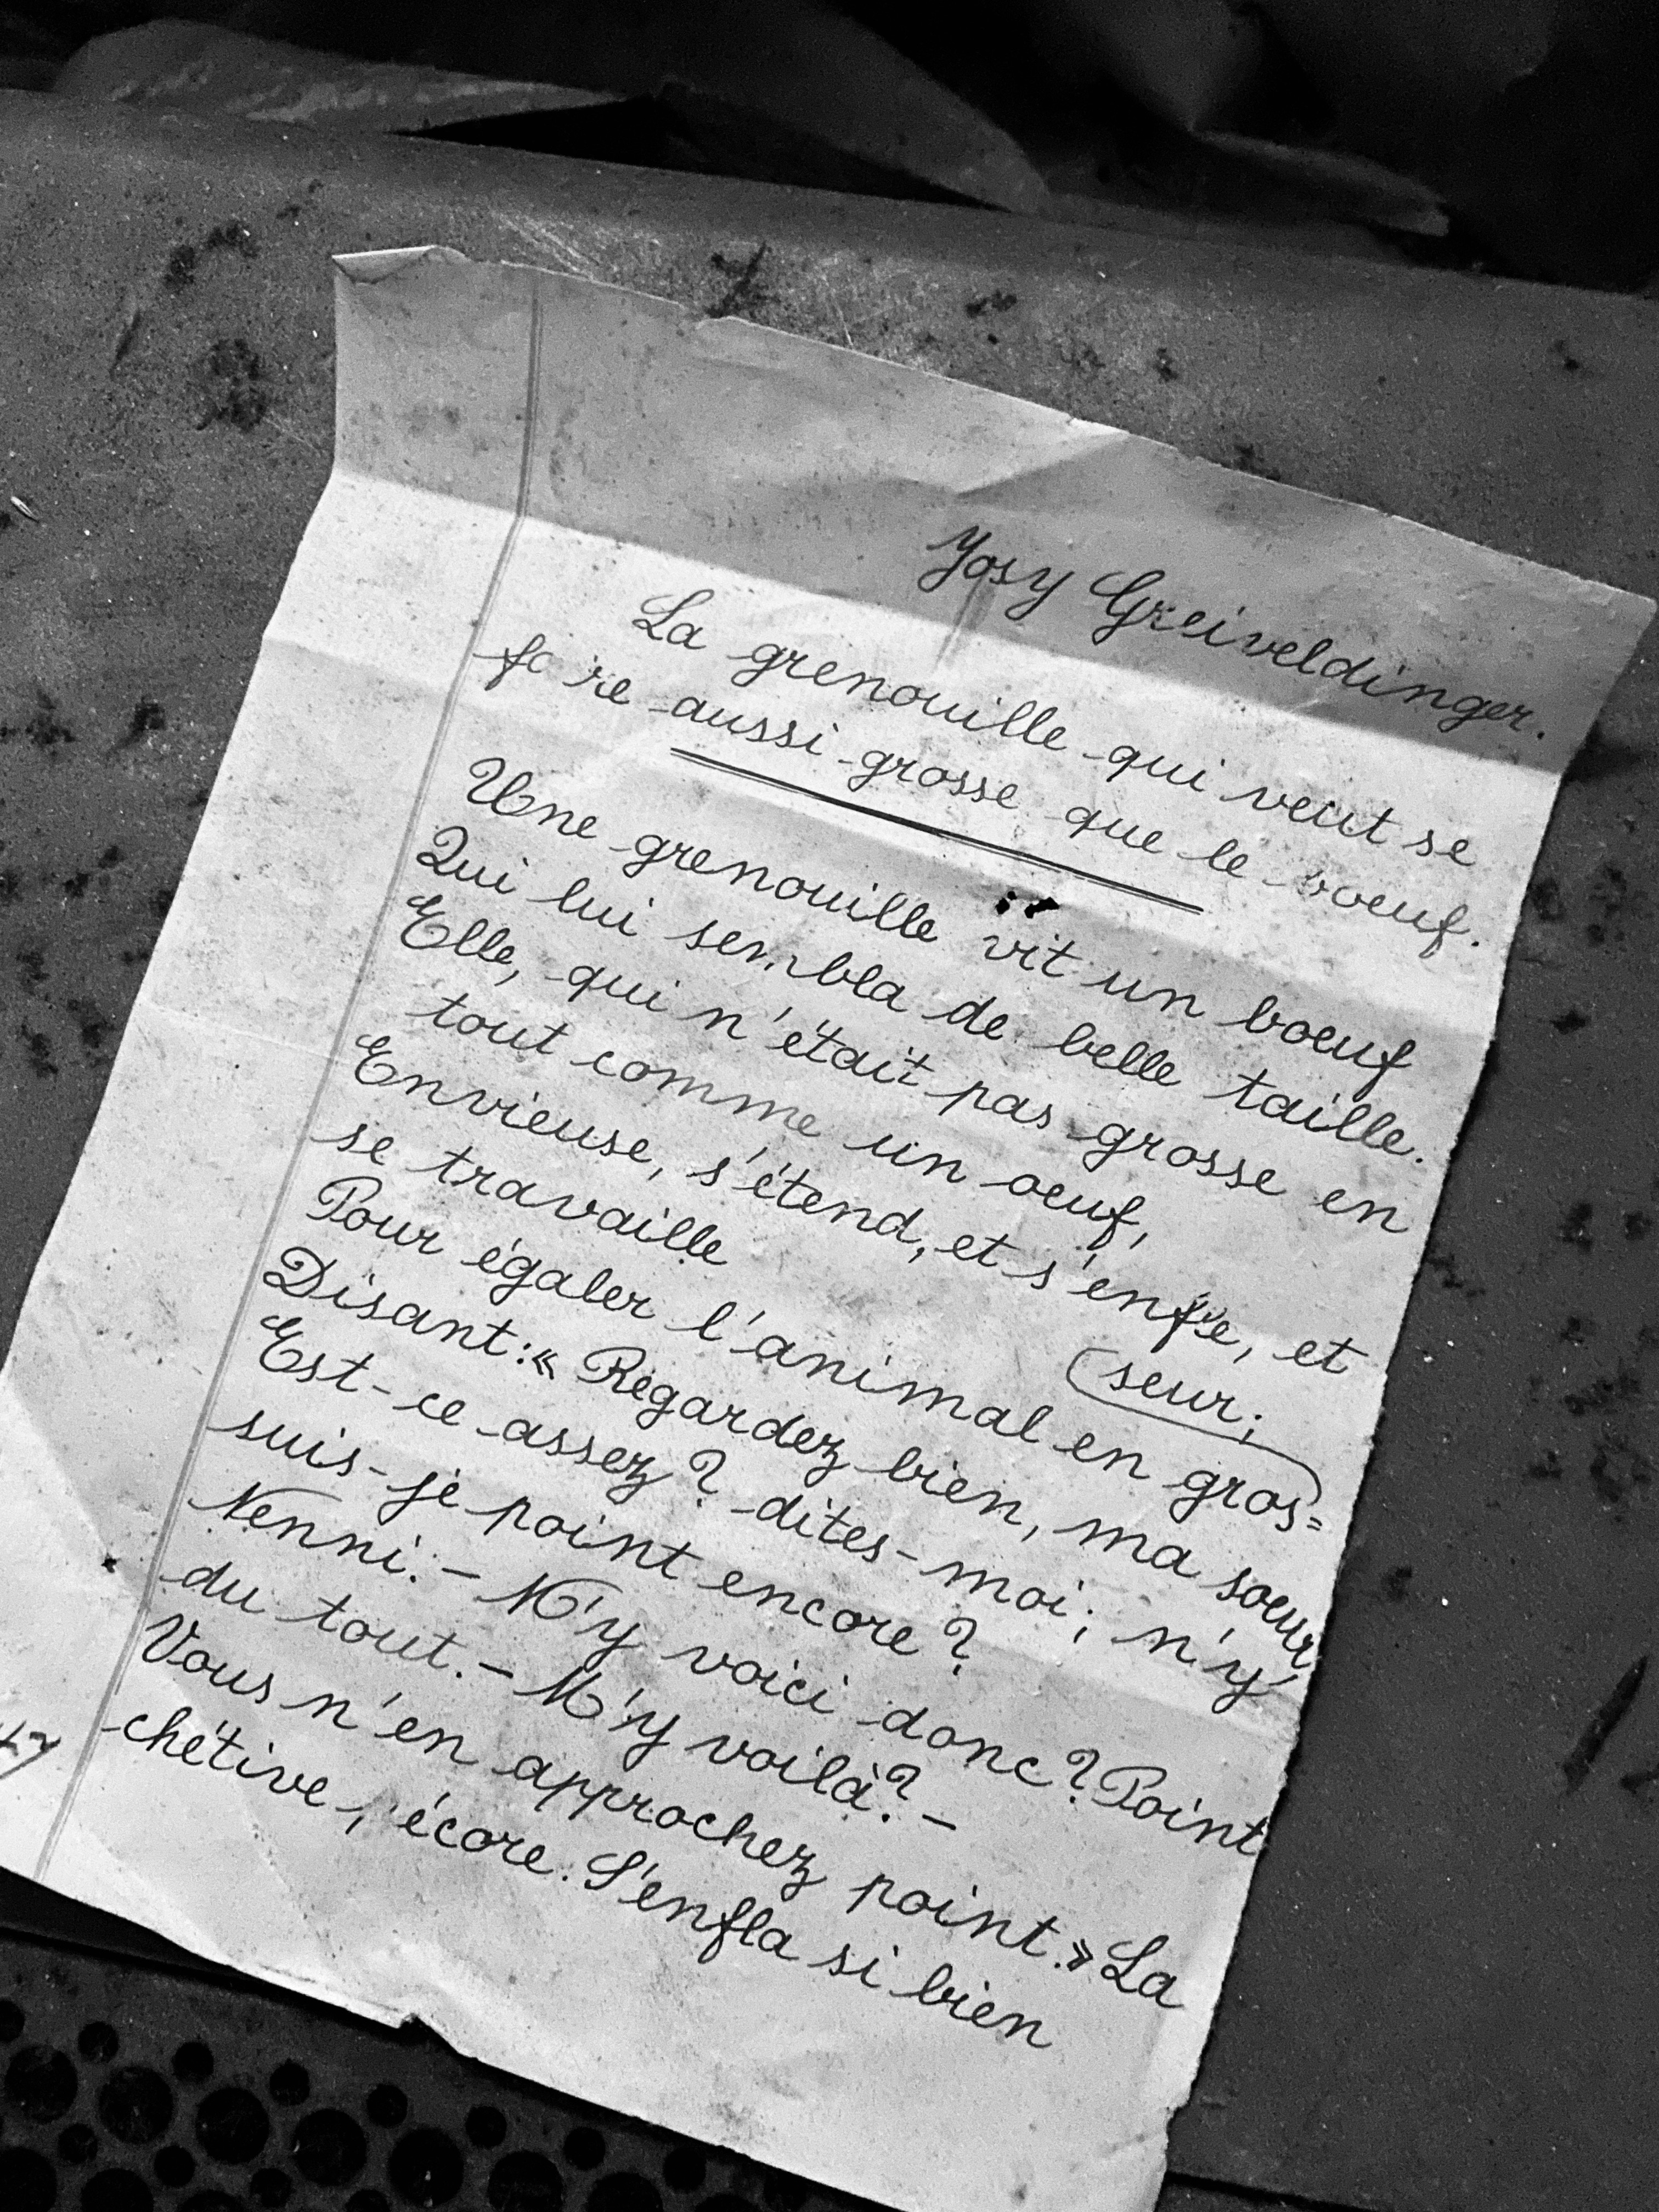 Josy Greiveldinger.
La grenouille qui veut se
faire aussi grosse que le boeuf.
Une grenouille vit un boeuf
Qui lui sembla de belle taille.
Elle, qui n'était pas grosse en
tout comme un oeuf,
Envieuse, s'étend, et s'enfle, et
se travaille
Pour égaler l'animal en gros=
(seur;
Disant: « Regardez bien, ma soeur,
Est-ce assez? dites-moi; n'y
suis-je point encore?
Nenni. - M'y voici donc? Point
du tout. - M'y voilà? -
Vous n'en approchez point.» La
chétive pécore. S'enfla si bien